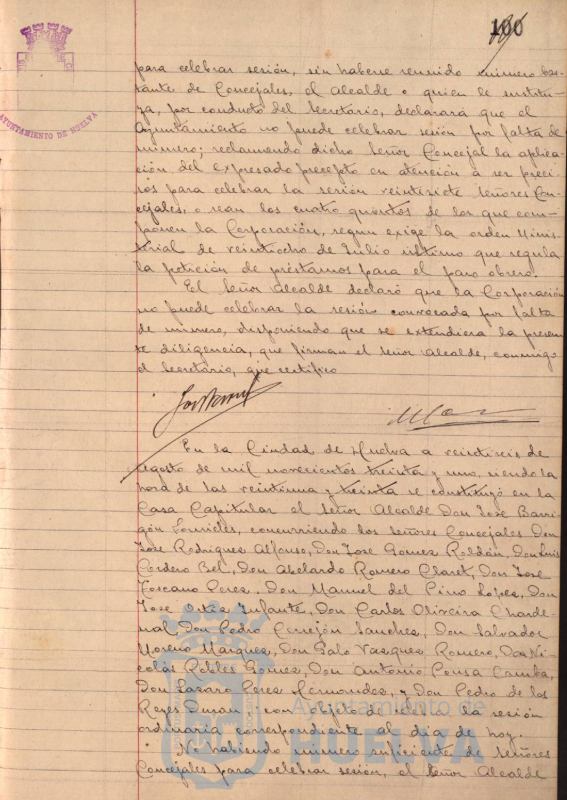 100
AYUNTAMIENTO DE HUELVA
para celebrar sesión, sin haberse reunido número bas-
tante de Concejales, el Alcalde o quien le sustitu-
ya, por conducto del Secretario, declarará que el
Ayuntamiento no puede celebrar sesión por falta de
número; reclamando dicho Señor Concejal la aplica-
ción del expresado precepto en atención a ser preci-
sos para celebrar la sesión veintisiete Señores Con-
cejales, o sean los cuatro quintos de los que com-
ponen la Corporación, según exige la orden Minis-
terial de veintiocho de Julio último que regula
la petición de préstamos para el paro obrero.
El Señor Alcalde declaró que la Corporación
no puede celebrar la sesión convocada por falta
de número, disponiendo que se extendiera la presen-
te diligencia, que firman el Señor Alcalde, conmigo
el Secretario, que certifico
En la Ciudad de Huelva a veintiseis de
Agosto de mil novecientos treinta y uno, siendo la
hora de las veintiuna y treinta se constituyó en la
Casa Capitular el Señor Alcalde Don José Barri-
gón Fornieles, concurriendo los Señores Concejales Don
José Rodriguez Alfonso, Don José Gomez Roldán, Don Luis
Cordero Bel, Don Abelardo Romero Claret, Don José
Toscano Perez, Don Manuel del Pino López, Don
José Ortiz Infante, Don Carlos Oliveira Charde-
nal, Don Pedro Cerrejón Sanchez, Don Salvador
Moreno Márquez, Don Galo Vazquez Romero, Don Ni-
colás Robles Gomez, Don Antonio Pousa Camba,
Don Lazaro Perez Hernandez, y Don Pedro de los
Reyes Duran: con objeto de celebrar la sesión
ordinaria correspondiente al día de hoy.
No habiendo número suficiente de señores
Concejales para celebrar sesión, el Señor Alcalde
Ayuntamiento de
HUELVA